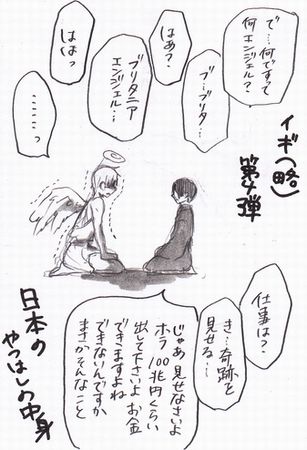 で…何ですって
何エンジェル?
ブ…ブリタ…
はあ?
ブリタニア
エンジェル…
ははっ
……っ
イギ(略)
第4弾
仕事は?
き…奇跡を
見せる…
じゃあ見せなさいよ
ホラ100兆円くらい
出して下さいよ お金
できますよね
できないんですか
まさかそんなこと
日本の
やつはしの中身